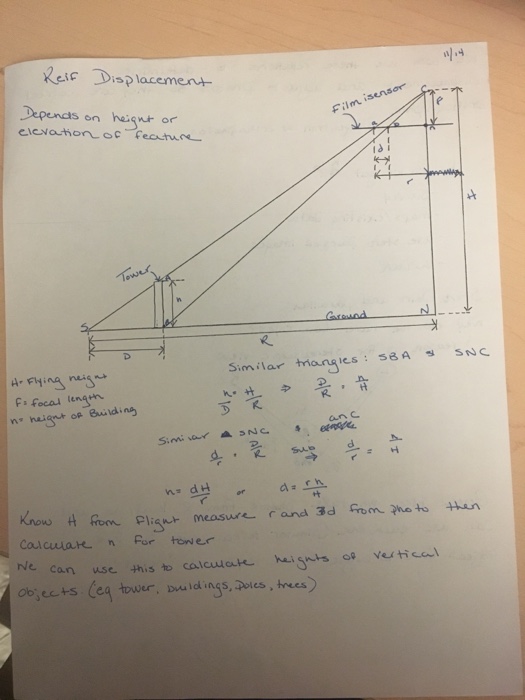 11/14
Reif Displacement
Depends on height or
elevation of feature
Film/sensor
C
F
a
d
r
H
Tower
A
h
B
S
Ground
N
R
D
Similar triangles: SBA & SNC
H = Flying height
F = focal length
h = height of Building
h/D = H/R ⇒ D/R = h/H
Similar SNC & anC
d/r = D/R sub ⇒ d/r = h/H
h = dH/r or d = rh/H
Know H from Flight measure r and d from photo then
calculate h for tower
We can use this to calculate heights of vertical
objects. (eg tower, buildings, poles, trees)